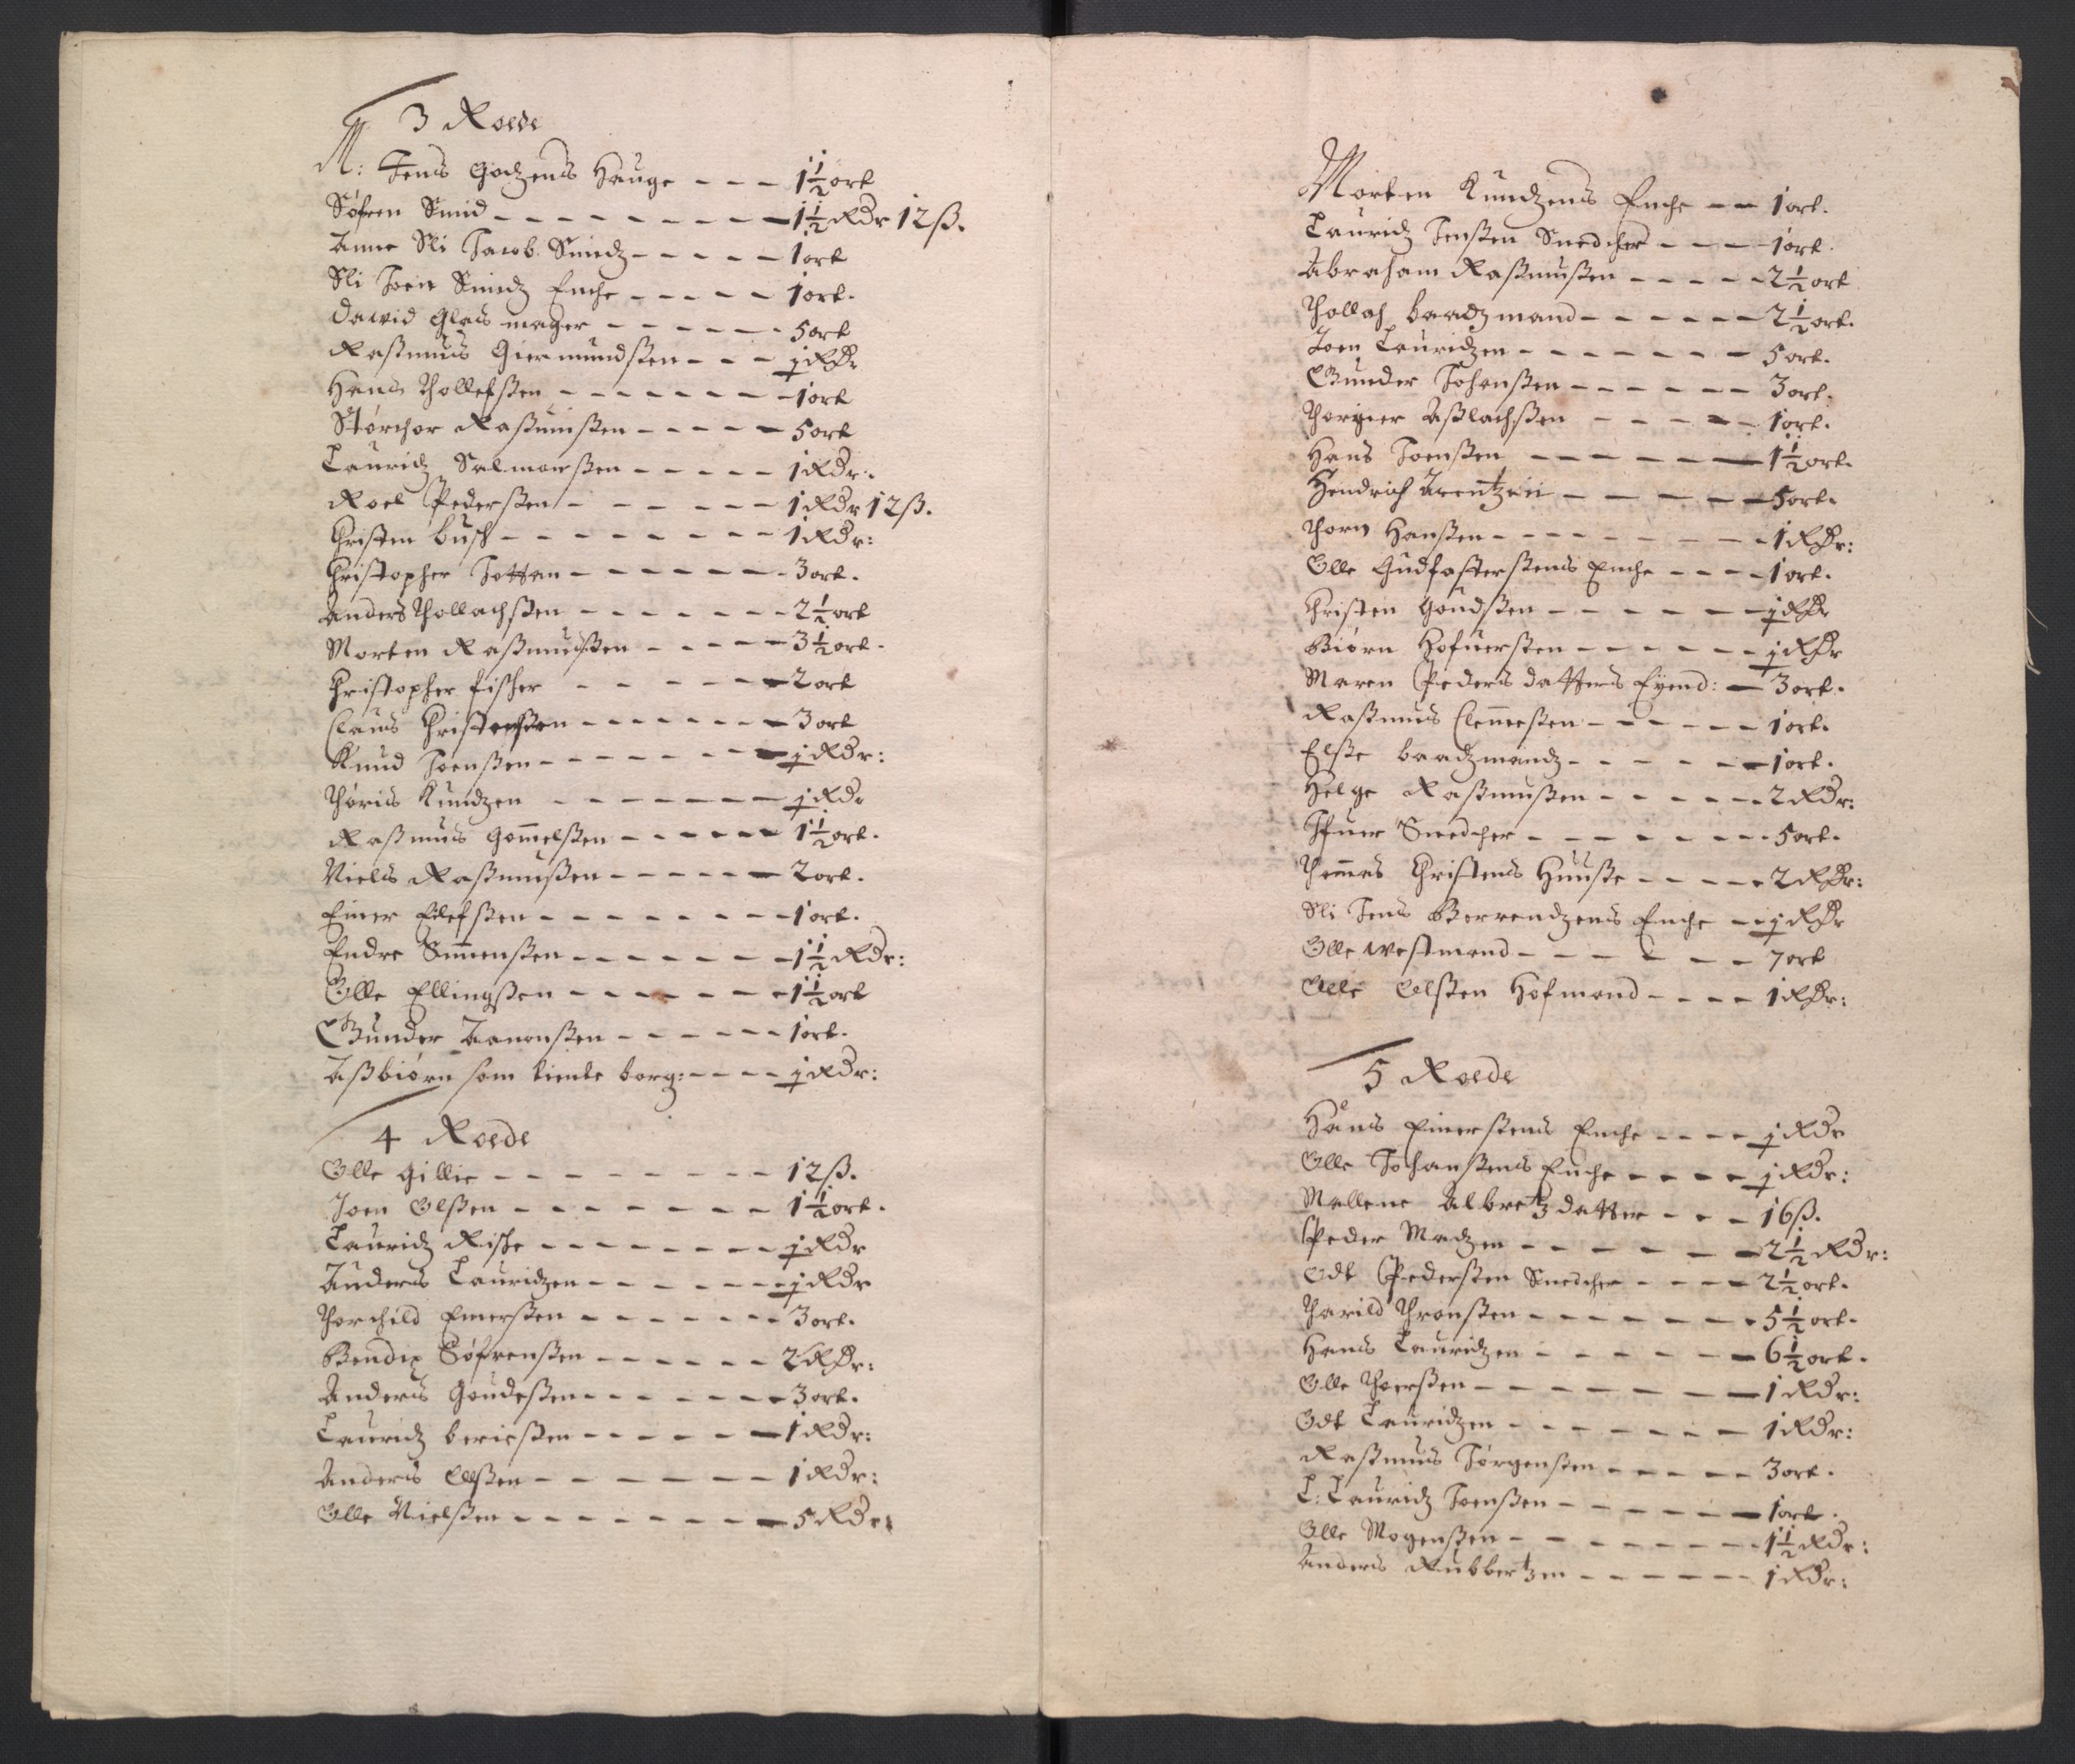 3 Roede
M: Jens Godzens Hauge - - - 1½ ort
Søfren Smid - - - 1½ Rdr 12 ß.
Anne Sli Jacob Smidz - - - 1 ort
Sli Joen Smidz Enche - - - 1 ort.
David Glasmager - - - 5 ort
Raßmus Giermundßen - - - ½ Rdr
Hans Thollefßen - - - 1 ort
Størchor Raßmußen - - - 5 ort
Lauridz Salmonßen - - - 1 Rdr.
Roel Pederßen - - - 1 Rdr 12 ß.
Christen Busch - - - 1 Rdr:
Christopher Jotten - - - 3 ort.
Anders Thollachßen - - - 2½ ort
Morten Raßmußen - - - 3½ ort.
Christopher fischer - - - 2 ort
Claus Christenßen - - - 3 ort
Knud Joenßen - - - ½ Rdr:
Thøris Kundzen - - - ½ Rdr
Raßmus Gom̄elßen - - - 1½ ort.
Niels Raßmußen - - - 2 ort.
Einer Eilefßen - - - 1 ort.
Endre Sim̄enßen - - - 1½ Rdr:
Olle Ellingßen - - - 1½ ort
Gunder Aanonßen - - - 1 ort.
Aßbiørn som tiente borg: - - - ½ Rdr:
4 Roede
Olle Gillie - - - 12 ß.
Joen Olßen - - - 1½ ort.
Lauridz Rische - - - ½ Rdr
Anders Lauridzen - - - ½ Rdr
Thorchild Einerßen - - - 3 ort.
Bendix Søfrenßen - - - 2 Rdr:
Anders Goudeßen - - - 3 ort.
Lauridz berießen - - - 1 Rdr:
Anders Olßen - - - 1 Rdr:
Olle Nielßen - - - 5 Rdr:
Morten Kundzens Enche - - 1 ort.
Lauridz Jenßen Snedcher - - - 1 ort.
Abraham Raßmußen - - - 2½ ort
Thollach baadzmand - - - 2½ ort.
Joen Lauridzen - - - 5 ort.
Gunder Johanßen - - - 3 ort.
Thorgier Aßlachßen - - - 1 ort.
Hans Joenßen - - - 1½ ort.
Hendrich Arentzen - - - 5 ort.
Thore Hanßen - - - 1 Rdr:
Olle Gudfasterßens Enche - - - 1 ort.
Christen Goudßen - - - ½ Rdr
Biørn Hofuerßen - - - ½ Rdr
Maren Peders datters Eyend: - 3 ort.
Raßmus Clem̄etßen - - - 1 ort.
Elße baadzmandz - - - 1 ort.
Helge Raßmußen - - - 2 Rdr:
Ifuer Snedcher - - - 5 ort.
Thom̄as Christens Huuße - - - 2 Rdr:
Sli Jens Berrendzens Enche - - ½ Rdr
Olle westmand - - - 7 ort
Olle Olßen Hofmand - - - 1 Rdr:
5 Roede
Hans Einerßens Enche - - - ½ Rdr
Olle Johanßens Enche - - - ½ Rdr:
Mallene Albretzdatter - - - 16 ß.
Peder Madzen - - - 2½ Rdr:
Odt Pederßen Snedcher - - - 2½ ort.
Tharild Thronßen - - - 5½ ort.
Hans Lauridzen - - - 6½ ort.
Olle Thoerßen - - - 1 Rdr:
Odt Lauridzen - - - 1 Rdr:
Raßmus Jørgenßen - - - 3 ort.
L: Lauridz Joenßen - - - 1 ort.
Olle Mogenßen - - - 1½ Rdr:
Anders Rubbertzen - - - 1 Rdr: